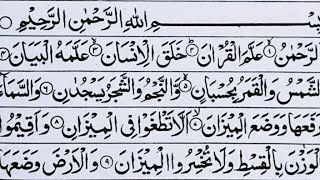 بِسْمِ اللهِ الرَّحْمٰنِ الرَّحِيْمِ
اَلرَّحْمٰنُ ۙ﴿۱﴾ عَلَّمَ الْقُرْاٰنَ ؕ﴿۲﴾ خَلَقَ الْاِنْسَانَ ۙ﴿۳﴾ عَلَّمَهُ الْبَيَانَ ﴿۴﴾
اَلشَّمْسُ وَالْقَمَرُ بِحُسْبَانٍ ﴿۵﴾ وَّالنَّجْمُ وَالشَّجَرُ يَسْجُدٰنِ ﴿۶﴾ وَالسَّمَآءَ
رَفَعَهَا وَوَضَعَ الْمِيْزَانَ ۙ﴿۷﴾ اَلَّا تَطْغَوْا فِى الْمِيْزَانِ ﴿۸﴾ وَاَقِيْمُوا
الْوَزْنَ بِالْقِسْطِ وَلَا تُخْسِرُوا الْمِيْزَانَ ﴿۹﴾ وَالْاَرْضَ وَضَعَهَا